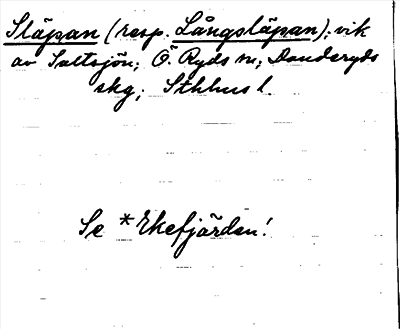 Släpan (resp. Långsläpan); vik
av Saltsjön; Ö. Ryds sn; Danderyds
skg; Sthlms l.
Se *Ekefjärden!